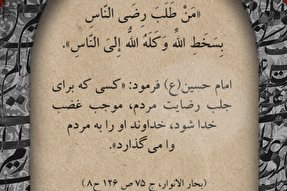 «مَنْ طَلَبَ رِضَی النّاسِ
بِسَخَطِ اللّهِ وَکَلَهُ اللّهُ إِلیَ النّاسِ».
امام حسین(ع) فرمود: «کسی که برای
جلب رضایت مردم، موجب غضب
خدا شود، خداوند او را به مردم
وا می‌گذارد».
(بحار الانوار، ج ۷۵ ص ۱۲۶ ح ۸)